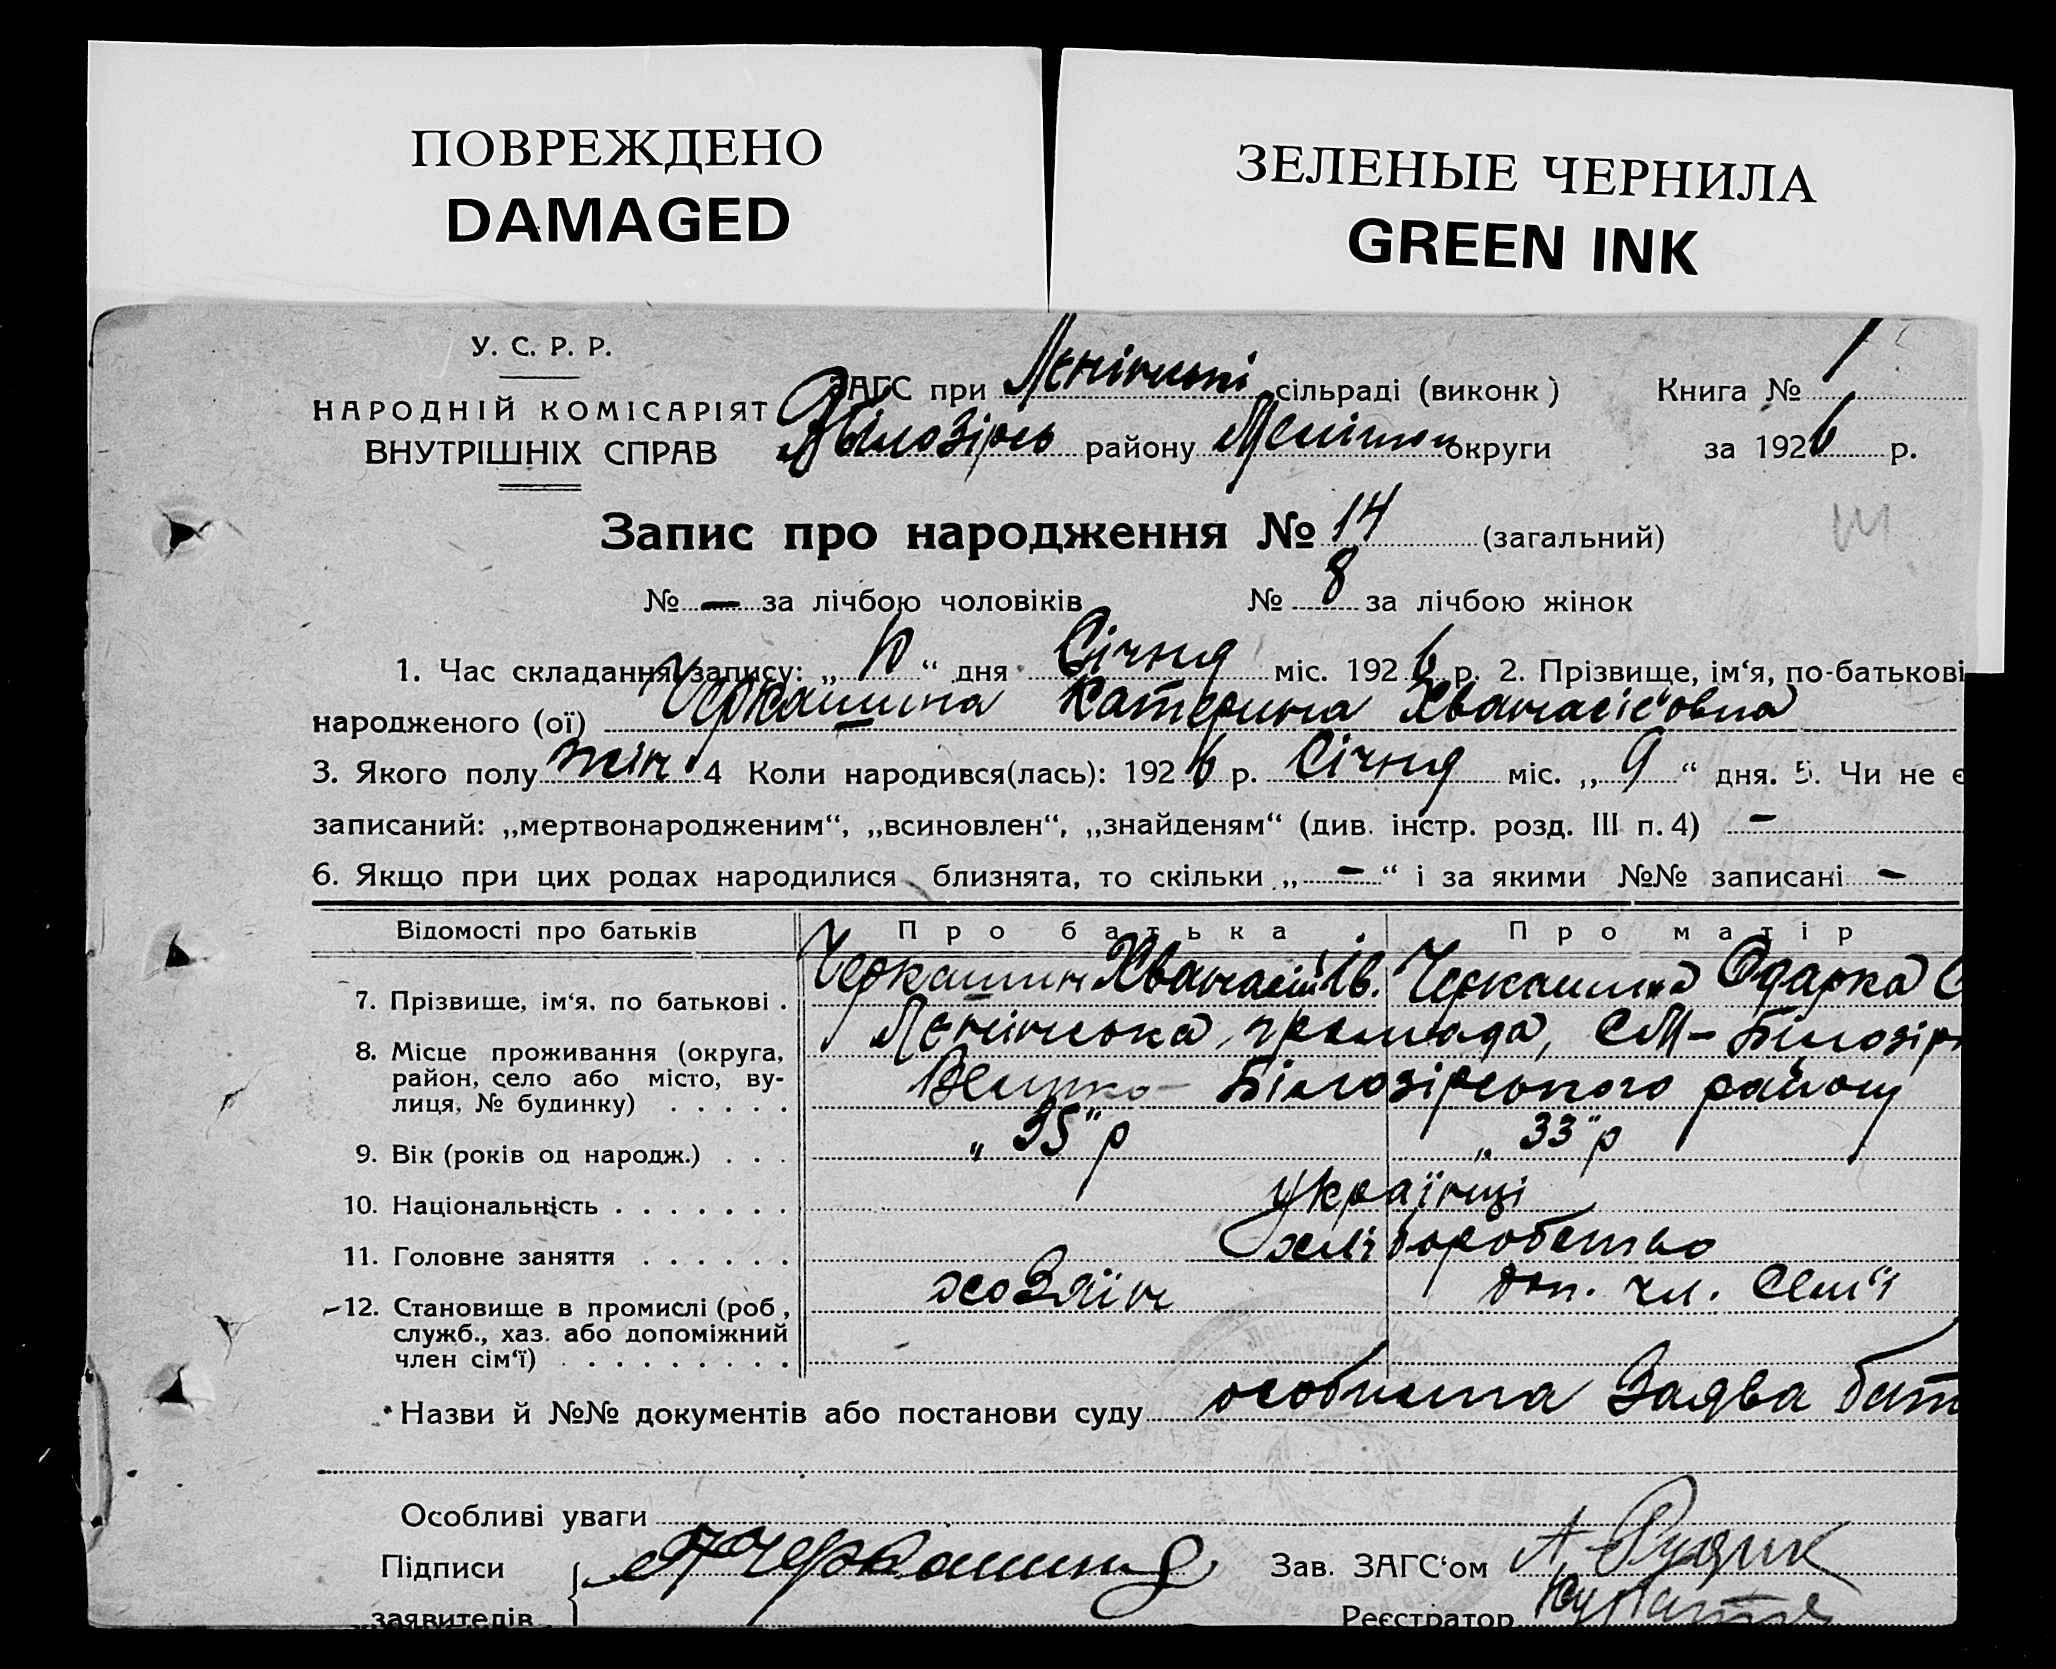 ПОВРЕЖДЕНО
DAMAGED
ЗЕЛЕНЫЕ ЧЕРНИЛА
GREEN INK
У. С. Р. Р.
НАРОДНІЙ КОМІСАРІЯТ
ВНУТРІШНІХ СПРАВ
ЗАГС при Ленінській сільраді (виконк) Книга № 1
Білозірсь району Меліт округи за 1926 р.
Запис про народження № 14 (загальний)
№ — за лічбою чоловіків № 8 за лічбою жінок
1. Час складання запису: „10“ дня Січня міс. 1926 р. 2. Прізвище, ім‘я, по-батькові
народженого (ої) Черкашина Катерина Хванасіє‘овна
3. Якого полу жін 4 Коли народився(лась): 1926 р. Січня міс. „9“ дня. 5. Чи не є
записаний: „мертвонародженим“, „всиновлен“, „знайденям“ (див. інстр. розд. III п. 4) —
6. Якщо при цих родах народилися близнята, то скільки „—“ і за якими №№ записані —
Відомості про батьків Про батька Про матір
7. Прізвище, ім‘я, по батькові . Черкашин Хванасій Ів. Черкашина Одарка С
8. Місце проживання (округа, район, село або місто, вулиця, № будинку) . . . . . Ленінська громада, СМ-Білозір
Велико-Білозірського району
9. Вік (років од народж.) . . . „35“ р „33“ р
10. Національність . . . . . . . Українці
11. Головне заняття . . . . . . хліборобство
12. Становище в промислі (роб, служб., хаз. або допоміжний член сім‘ї) . . . . . . . . . хозяїн доп. чл. сем‘ї
Назви й №№ документів або постанови суду особиста Заява бат
Особливі уваги
Підписи
заявителів Черкашин
Зав. ЗАГС‘ом А. Рудик
Реєстратор